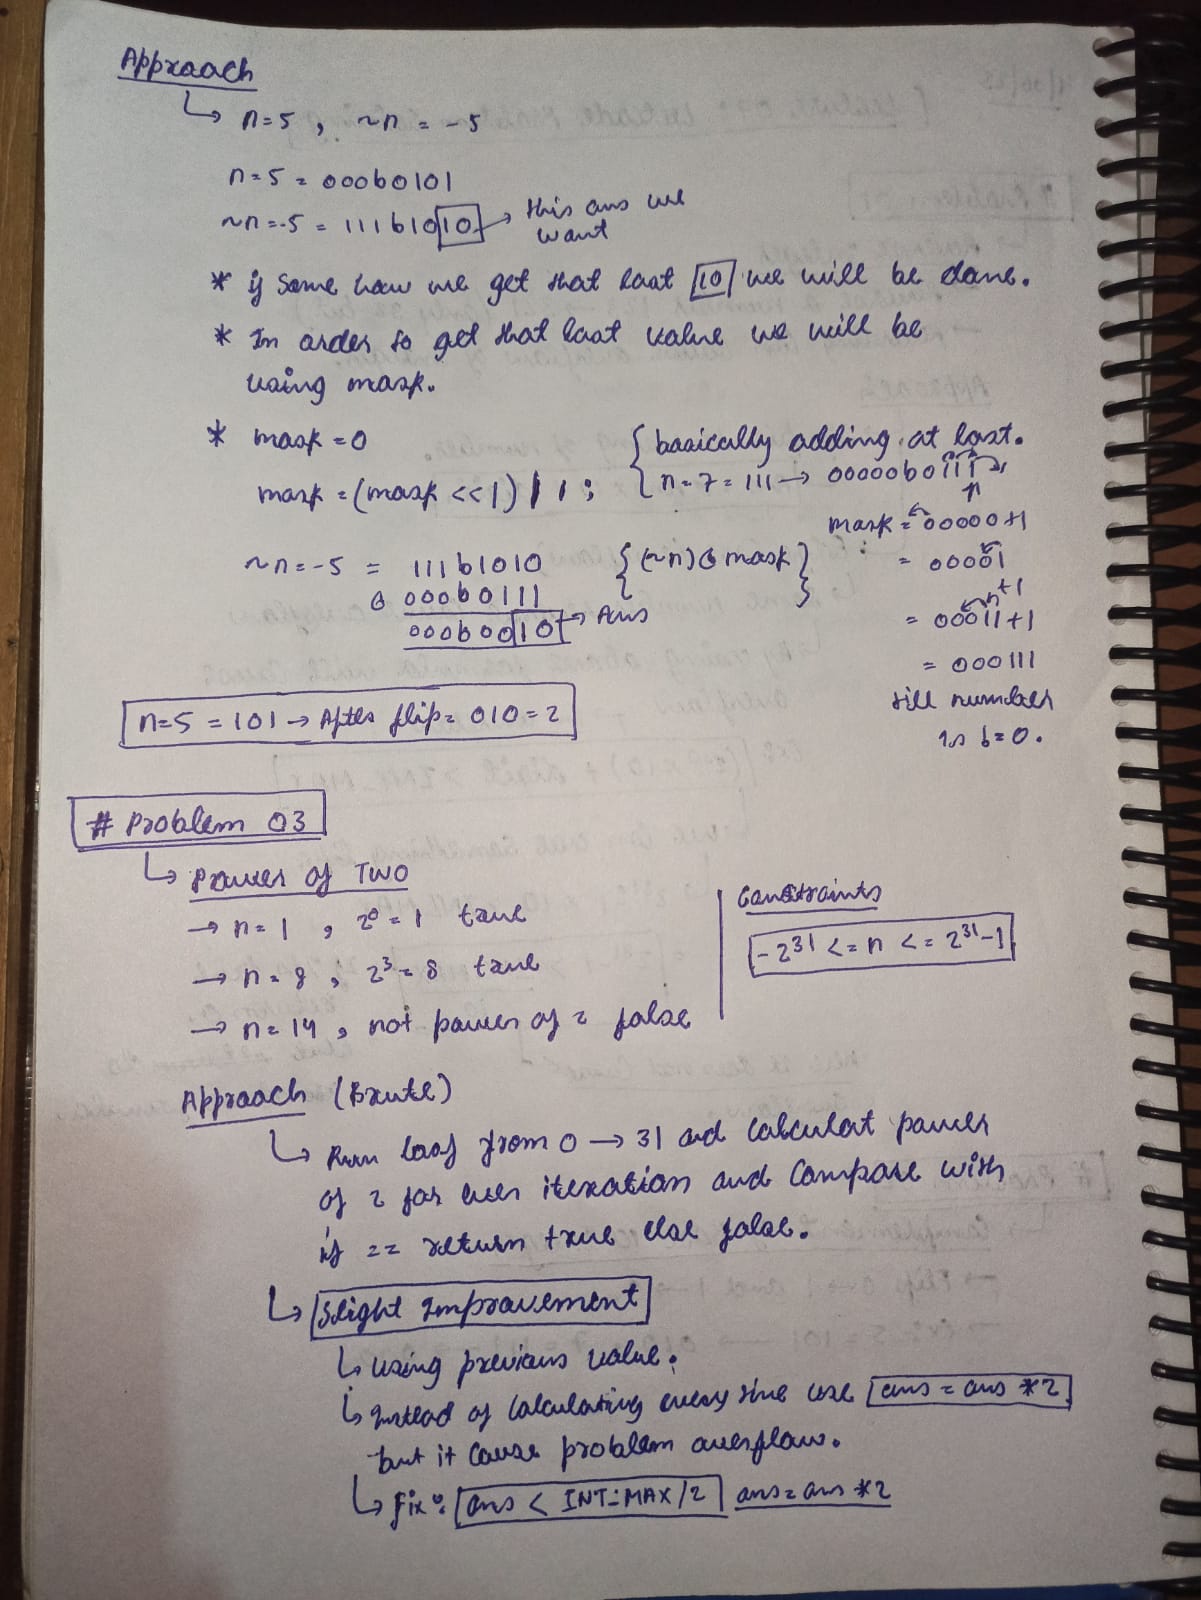 Approach
↳ n=5, ~n = -5
n=5 = 000b0101
~n=-5 = 111b1010 → this ans we
want
* if some how we get that last 10 we will be done.
* In order to get that last value we will be
using mask.
* mask = 0
mask = (mask <<1) | 1 ;
{ basically adding at last.
n=7 = 111 → 00000b0111
mask = 00000+1
= 00001
n+1
= 00011+1
= 000111
till number
is b=0.
~n=-5 = 111b1010 { (~n) & mask }
& 000b0111
000b0010 → Ans
n=5 = 101 → After flip = 010 = 2
# Problem 03
↳ Power of Two
→ n=1, 2⁰=1 true
→ n=8, 2³=8 true
→ n=14, not power of 2 false
Constraints
-2³¹ <= n <= 2³¹-1
Approach (Brute)
↳ Run loop from 0 → 31 and calculat power
of 2 for ever iteration and compare with
if == return true else false.
↳ Slight Improvement
↳ using previous value.
↳ instead of calculating every time use ans = ans *2
but it cause problem overflow.
↳ fix: ans < INT-MAX/2 ans = ans *2